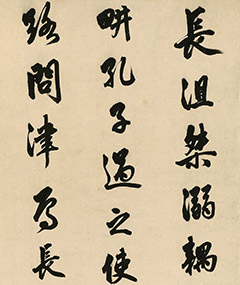 長沮桀溺耦
耕孔子過之使
路問津焉長